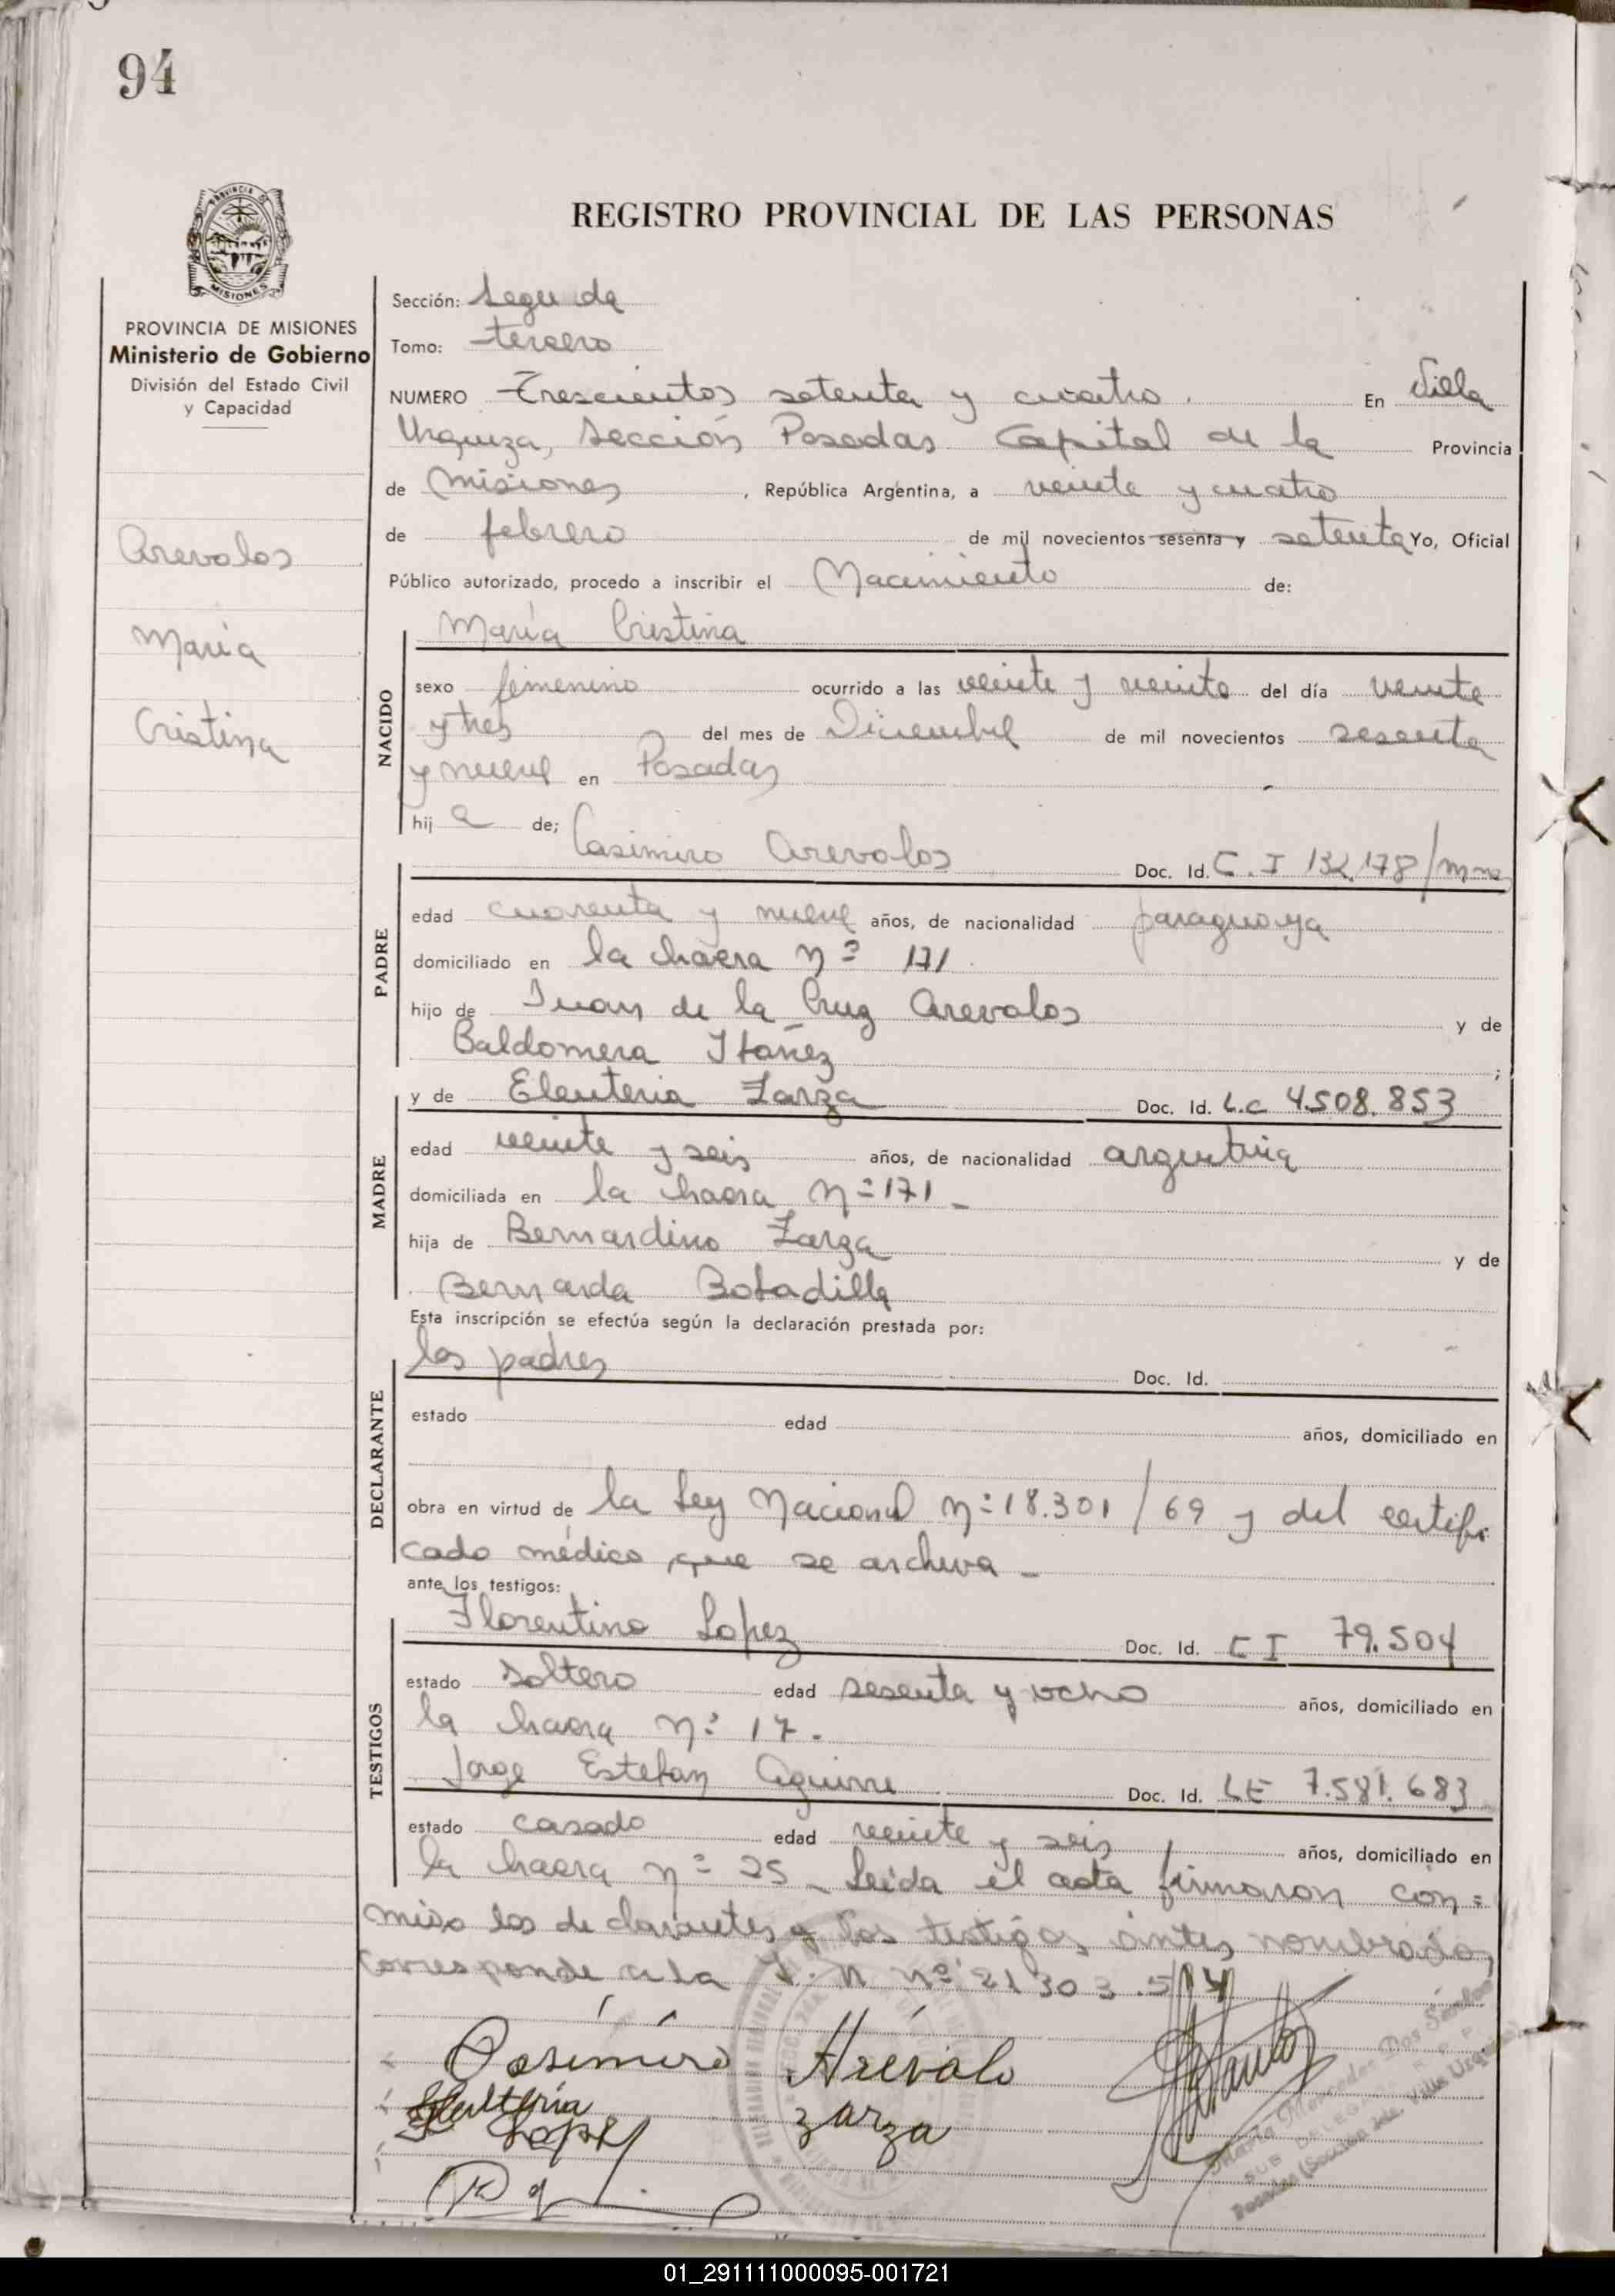 94
PROVINCIA
MISIONES
REGISTRO PROVINCIAL DE LAS PERSONAS
PROVINCIA DE MISIONES
Ministerio de Gobierno
División del Estado Civil
y Capacidad
Arevalos
María
Cristina
Sección: Segunda
Tomo: tercero
NUMERO Trescientos setenta y cuatro. En Villa
Urquiza, Sección Posadas Capital de la Provincia
de Misiones, República Argentina, a veinte y cuatro
de febrero de mil novecientos sesenta y setenta Yo, Oficial
Público autorizado, procedo a inscribir el Nacimiento de:
María Cristina
NACIDO
sexo femenino ocurrido a las veinte y veinte del día veinte
y tres del mes de Diciembre de mil novecientos sesenta
y nueve en Posadas
hij a de; Casimiro Arevalos Doc. Id. C. I 132.178/Mnes
PADRE
edad cuarenta y nueve años, de nacionalidad paraguaya
domiciliado en la chacra Nº 171.
hijo de Juan de la Cruz Arevalos y de
Baldomera Ibañez ;
y de Eleuteria Zarza Doc. Id. L.C 4.508.853
MADRE
edad veinte y seis años, de nacionalidad argentina
domiciliada en la chacra Nº 171 -
hija de Bernardino Zarza y de
Bernarda Bobadilla
Esta inscripción se efectúa según la declaración prestada por:
los padres Doc. Id.
DECLARANTE
estado edad años, domiciliado en
obra en virtud de la Ley Nacional Nº 18.301/69 y del certifi
cado médico, que se archiva -
ante los testigos:
Florentino Lopez Doc. Id. C I 79.504
TESTIGOS
estado soltero edad sesenta y ocho años, domiciliado en
la chacra Nº 17.
Jorge Esteban Aguirre Doc. Id. LE 7.581.683
estado casado edad veinte y seis años, domiciliado en
la chacra Nº 25 - Leída el acta firmaron con=
migo los declarantes y los testigos antes nombrados,
Corresponde a la I. N Nº 21 303.514
Casimiro Arévalo
Eleuteria Zarza
Lopez
María Mercedes Dos Santos
SUB DELEGADA R. P. P.
Posadas (Sección 2da. Villa Urquiza)
01_291111000095-001721